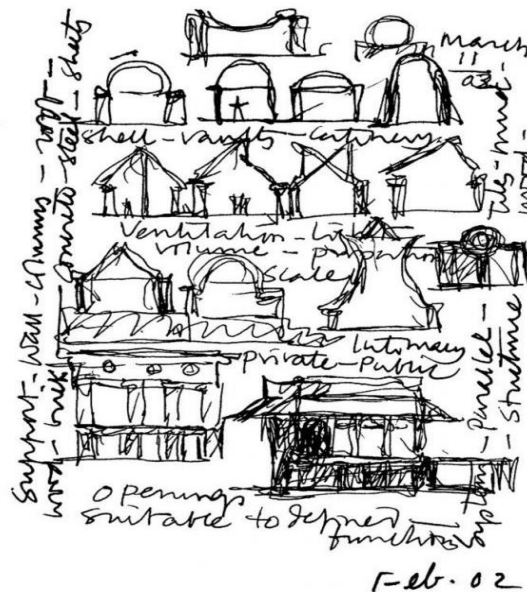 March
11
02
Shell-vaults-Catenary
Ventilation-
volume-
scale
Intimacy
Private-Public
Openings
suitable to defined
functions
Feb. 02
Support-Wall-Columns-roof-
wood-brick-Concrete-steel-sheets
Tiles-
wood-
System-Parallel-
-Structure